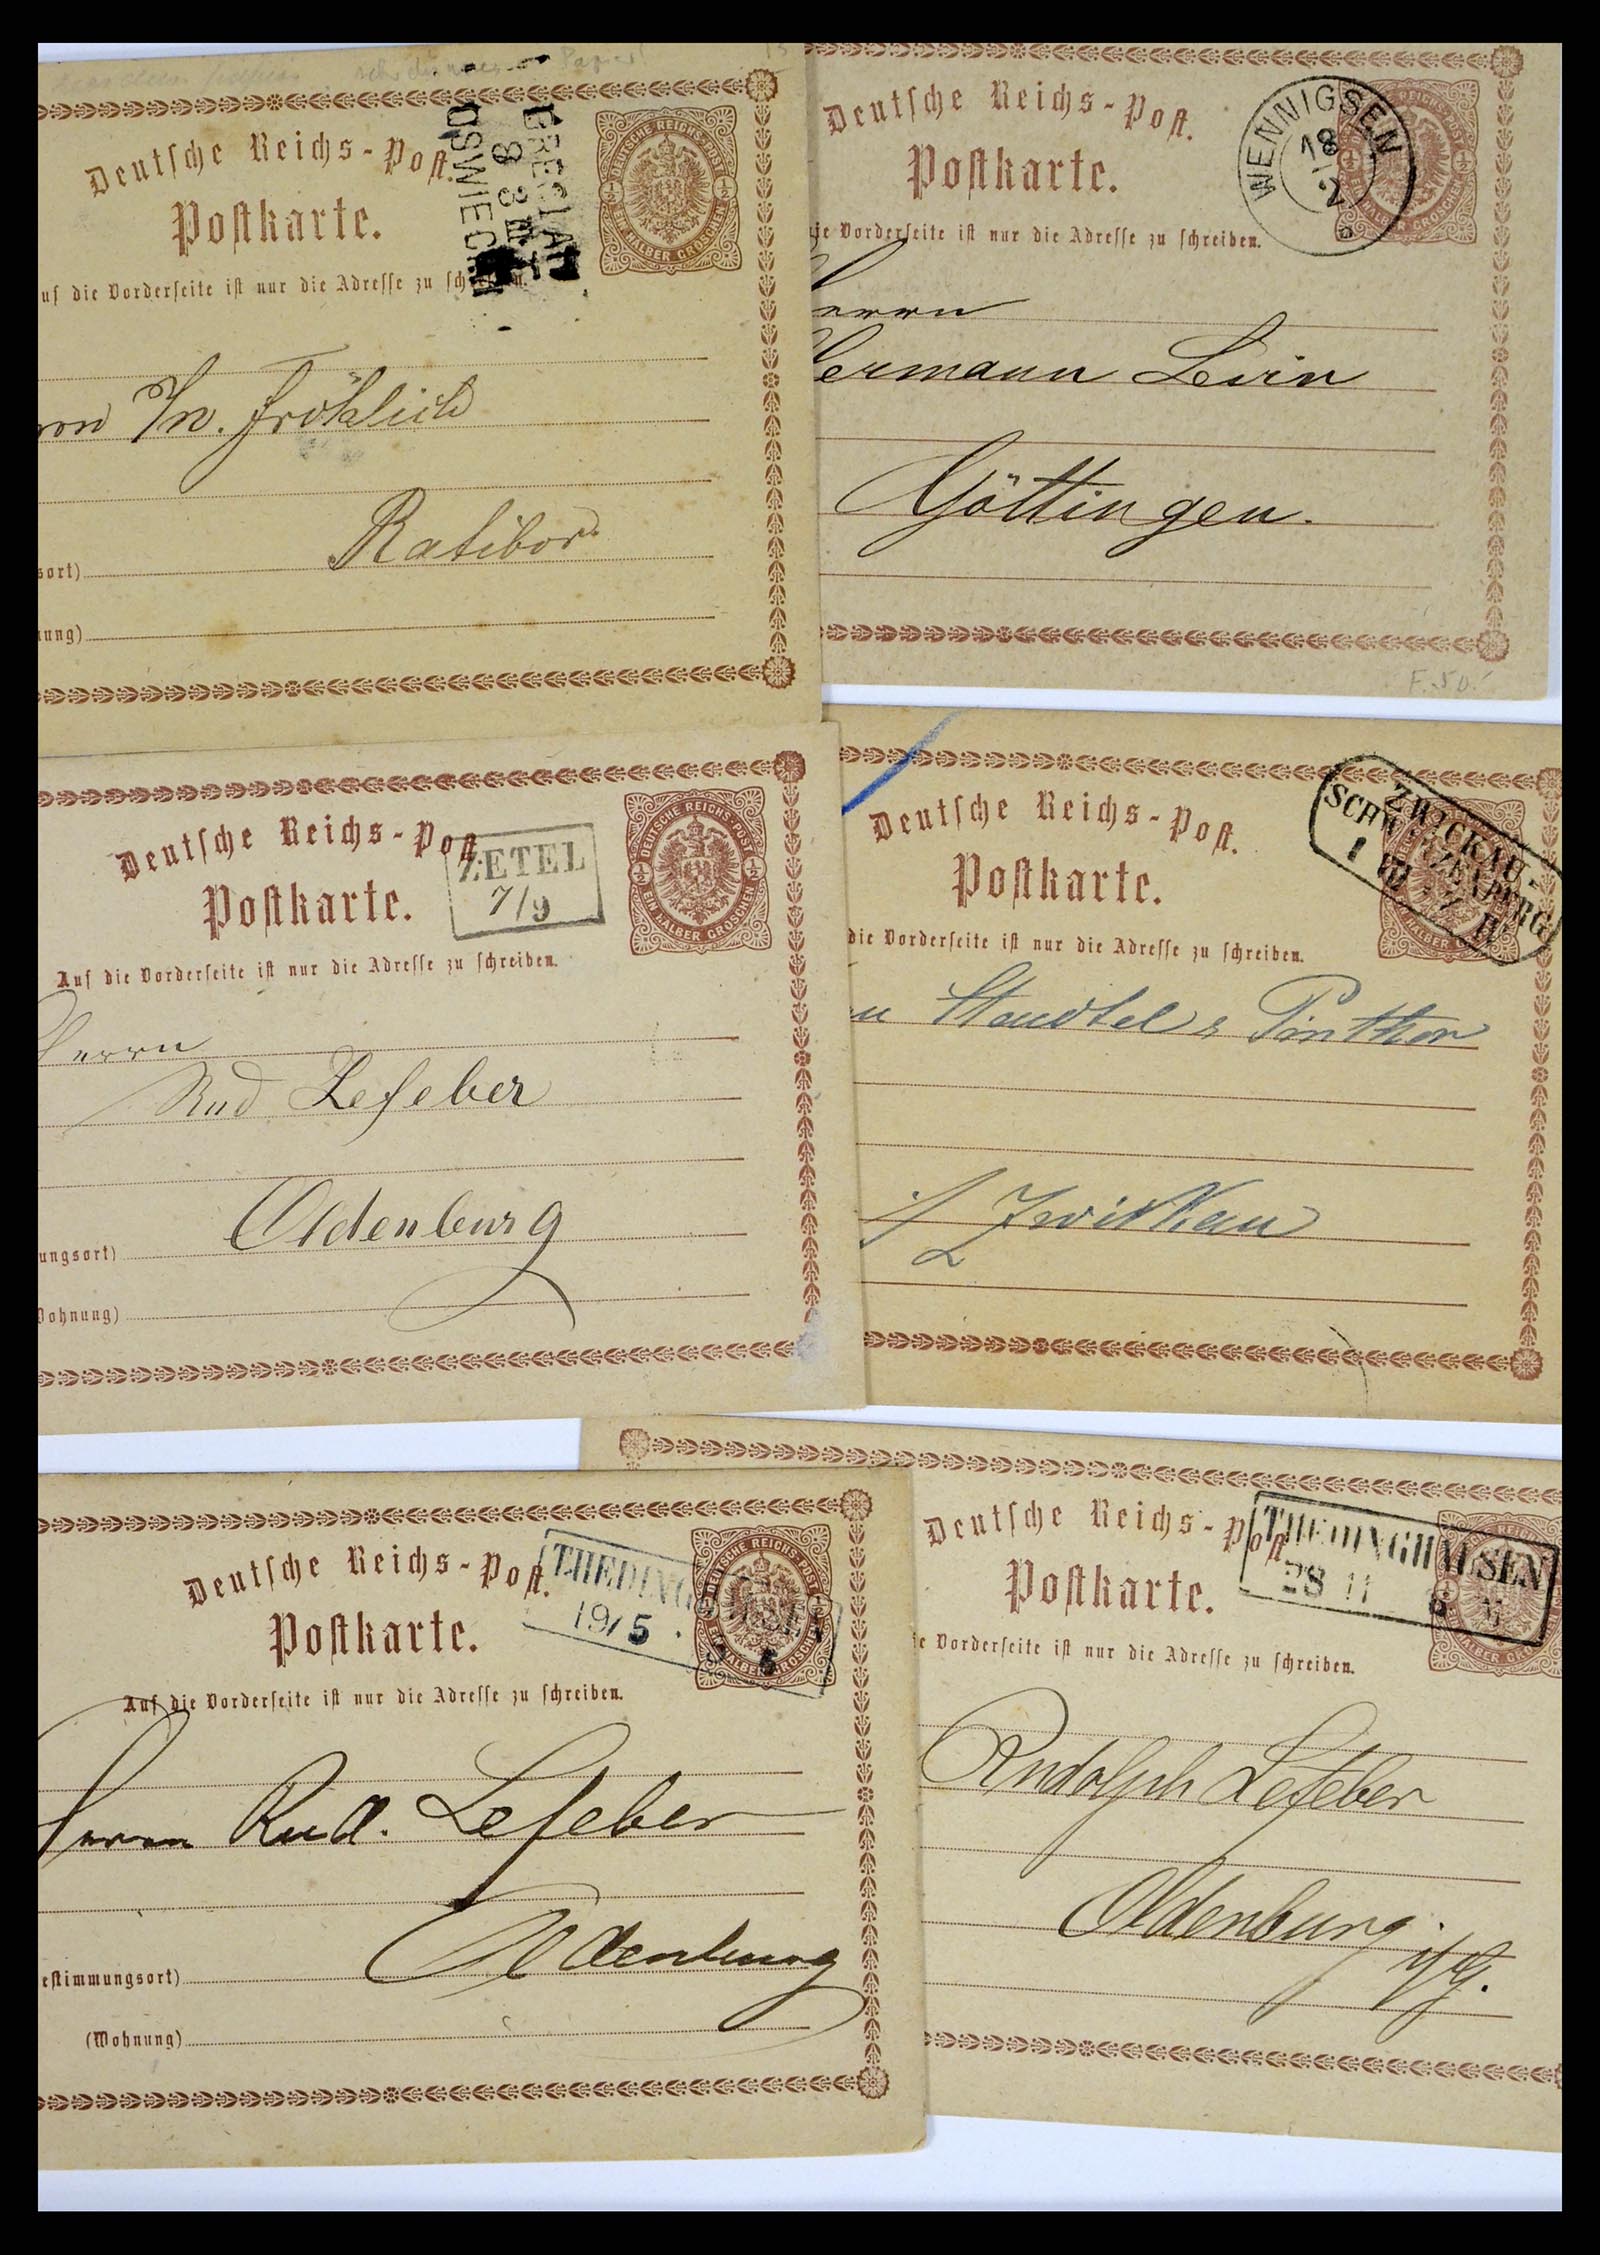 Deutsche Reichs-Post.
Postkarte.
BRESLAU
8 3 III
OSWIECIM
DEUTSCHE REICHS-POST
½ ½
EIN HALBER GROSCHEN
uf die Vorderseite ist nur die Adresse zu
M. Fröhlich
Ratibor
sort)
nung)
Deutsche Reichs-Post.
Postkarte.
WENNIGSEN
18
2
ie Vorderseite ist nur die Adresse zu schreiben.
Herrn
Hermann Levin
Göttingen.
F. 50.
Deutsche Reichs-Post.
Postkarte.
ZETEL
7/9
DEUTSCHE REICHS-POST
½ ½
EIN HALBER GROSCHEN
Auf die Vorderseite ist nur die Adresse zu schreiben.
Herrn
Rud Lefeber
Oldenburg
ungsort)
Wohnung)
Deutsche Reichs-Post.
Postkarte.
ZWICKAU-
SCHWARZENBERG
die Vorderseite ist nur die Adresse zu schreiben.
Zwickau
Deutsche Reichs-Post.
Postkarte.
19/5
DEUTSCHE REICHS-POST
EIN HALBER GROSCHEN
Auf die Vorderseite ist nur die Adresse zu schreiben.
Herrn Rud. Lefeber
Oldenburg
estimmungsort)
(Wohnung)
Deutsche Reichs-Post.
Postkarte.
THEDINGHAUSEN
28 11
ie Vorderseite ist nur die Adresse zu schreiben.
Rudolph Lefeber
Oldenburg
i/G.